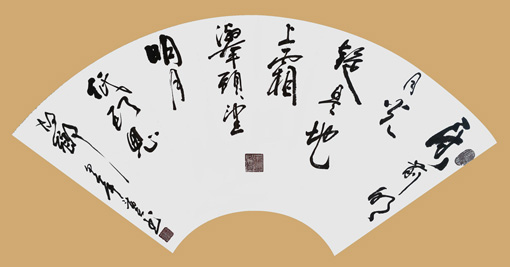 床前明
月光
疑是地
上霜
舉頭望
明月
低頭思
故鄉